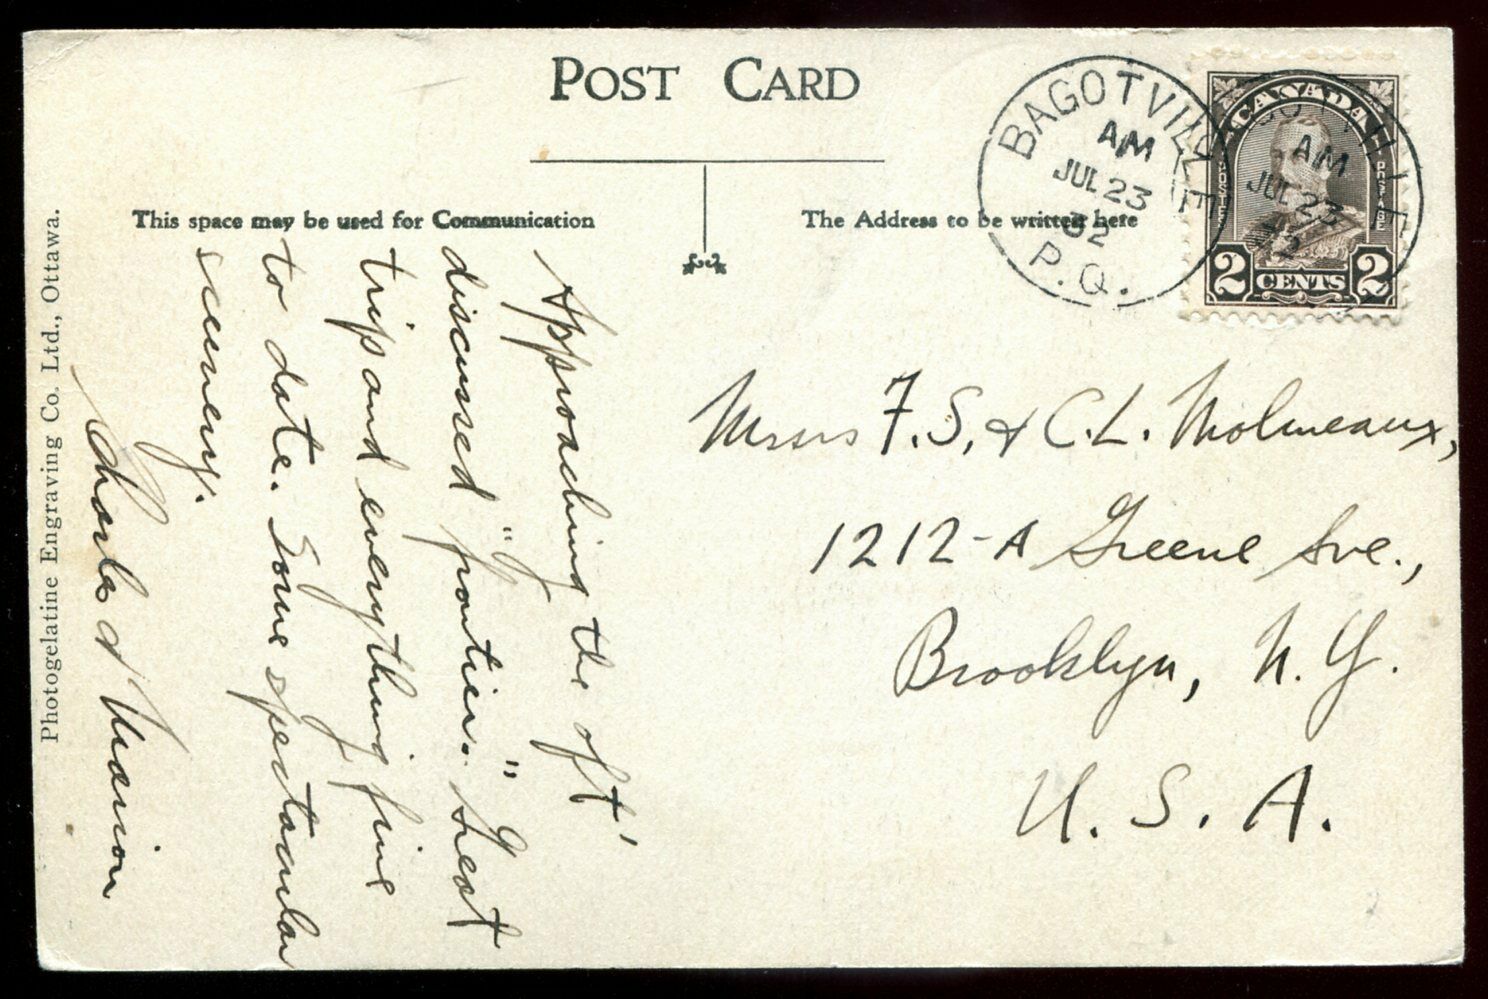 POST CARD
This space may be used for Communication
The Address to be written here
BAGOTVILLE
AM
JUL 23
32
P.Q.
CANADA
POSTES
POSTAGE
2 CENTS 2
AM
JUL 23
32
Approaching the oft'
discussed "frontier." Great
trip and everything fine
to date. Some spectacular
scenery.
Charles & Marion
Messrs F. S. & C. L. Molineaux,
1212-A Greene Ave.,
Brooklyn, N. Y.
U. S. A.
Photogelatine Engraving Co. Ltd., Ottawa.